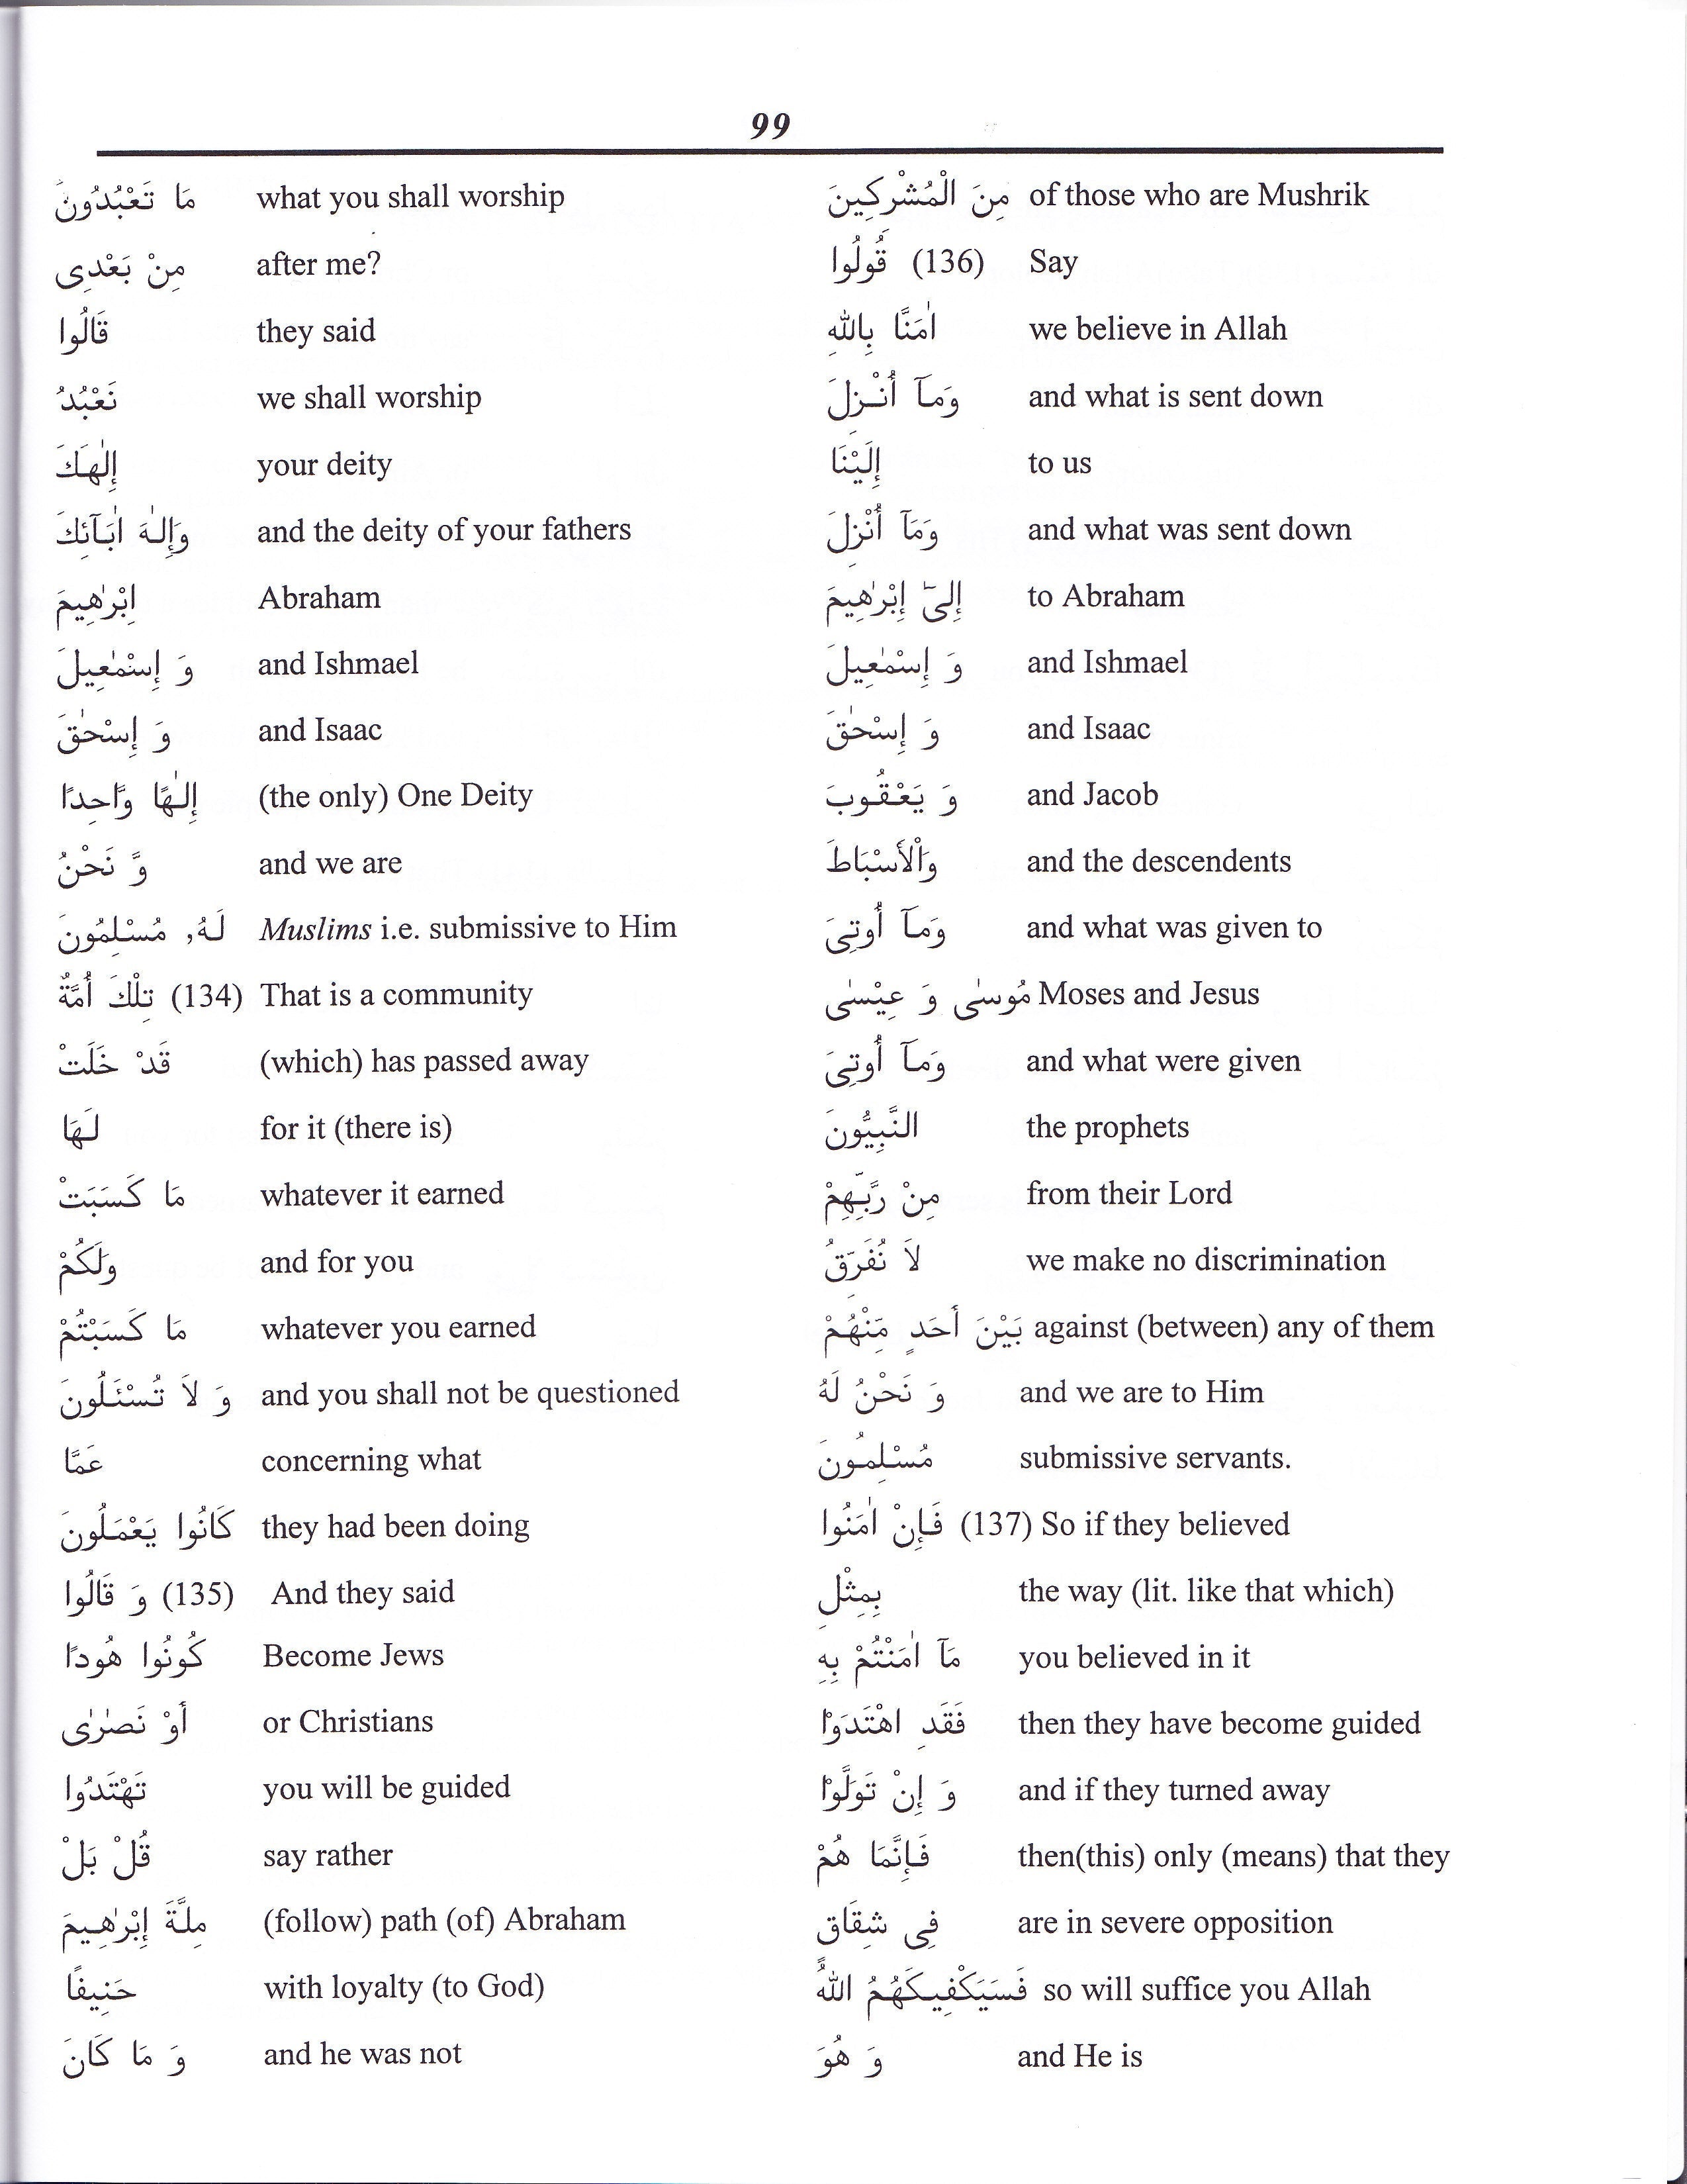 99
مَا تَعْبُدُونَ what you shall worship
مِنْ بَعْدِى after me?
قَالُوا they said
نَعْبُدُ we shall worship
إِلٰهَكَ your deity
وَإِلٰهَ اٰبَآئِكَ and the deity of your fathers
اِبْرٰهِيمَ Abraham
وَ إِسْمٰعِيلَ and Ishmael
وَ إِسْحٰقَ and Isaac
إِلٰهًا وَّاحِدًا (the only) One Deity
وَّ نَحْنُ and we are
لَهُ, مُسْلِمُونَ Muslims i.e. submissive to Him
تِلْكَ أُمَّةٌ (134) That is a community
قَدْ خَلَتْ (which) has passed away
لَهَا for it (there is)
مَا كَسَبَتْ whatever it earned
وَلَكُمْ and for you
مَا كَسَبْتُمْ whatever you earned
وَ لاَ تُسْئَلُونَ and you shall not be questioned
عَمَّا concerning what
كَانُوا يَعْمَلُونَ they had been doing
وَ قَالُوا (135) And they said
كُونُوا هُودًا Become Jews
أَوْ نَصٰرٰى or Christians
تَهْتَدُوا you will be guided
قُلْ بَلْ say rather
مِلَّةَ إِبْرٰهِيمَ (follow) path (of) Abraham
حَنِيفًا with loyalty (to God)
وَ مَا كَانَ and he was not
مِنَ الْمُشْرِكِينَ of those who are Mushrik
قُولُوا (136) Say
اٰمَنَّا بِاللهِ we believe in Allah
وَمَآ أُنْزِلَ and what is sent down
إِلَيْنَا to us
وَمَآ أُنْزِلَ and what was sent down
إِلىٓ إِبْرٰهِيمَ to Abraham
وَ إِسْمٰعِيلَ and Ishmael
وَ إِسْحٰقَ and Isaac
وَ يَعْقُوبَ and Jacob
وَالْأَسْبَاطَ and the descendents
وَمَآ أُوتِىَ and what was given to
مُوسٰى وَ عِيْسٰى Moses and Jesus
وَمَآ أُوتِىَ and what were given
النَّبِيُّونَ the prophets
مِنْ رَّبِّهِمْ from their Lord
لاَ نُفَرِّقُ we make no discrimination
بَيْنَ أَحَدٍ مِّنْهُمْ against (between) any of them
وَ نَحْنُ لَهُ and we are to Him
مُسْلِمُونَ submissive servants.
فَإِنْ اٰمَنُوا (137) So if they believed
بِمِثْلِ the way (lit. like that which)
مَآ اٰمَنْتُمْ بِهِ you believed in it
فَقَدِ اهْتَدَوْا then they have become guided
وَ إِنْ تَوَلَّوْا and if they turned away
فَإِنَّمَا هُمْ then(this) only (means) that they
فِى شِقَاقٍ are in severe opposition
فَسَيَكْفِيكَهُمُ اللهُ so will suffice you Allah
وَ هُوَ and He is